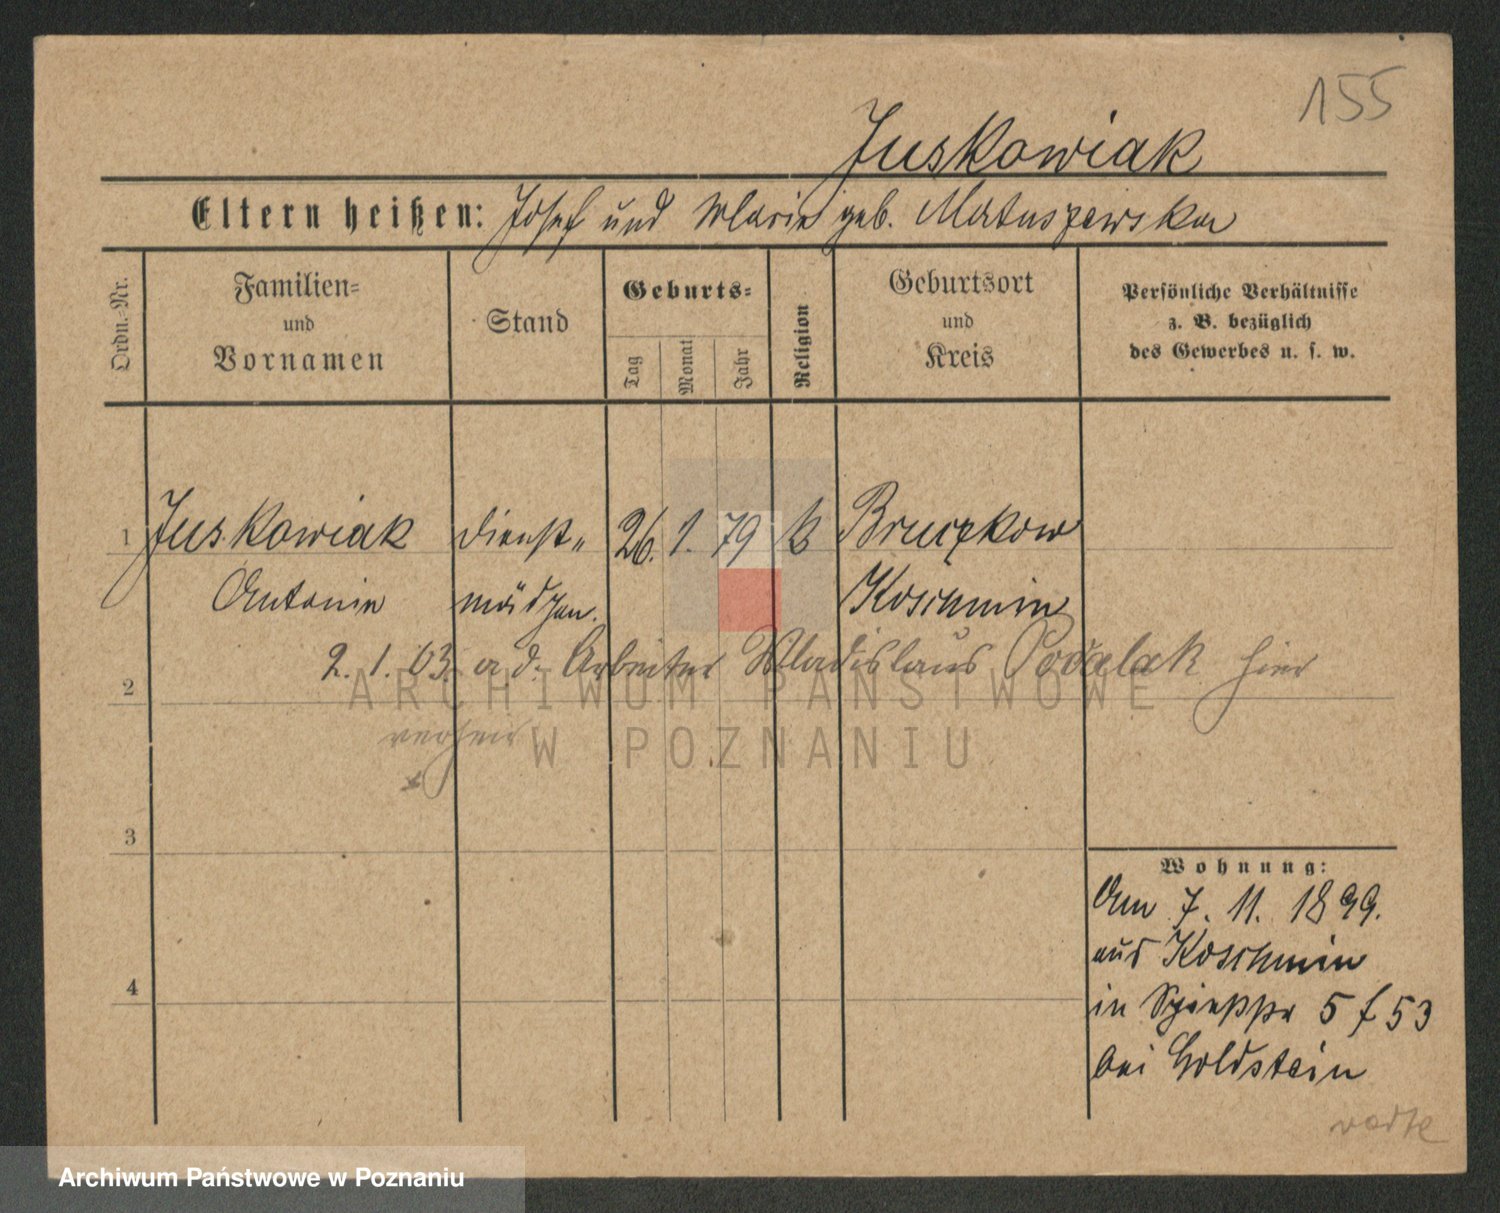 155
Juskowiak
Eltern heißen: Josef und Marie geb. Matuszewska
Ordn.-Nr.
Familien- und Vornamen
Stand
Geburts-
Tag
Monat
Jahr
Religion
Geburtsort und Kreis
Persönliche Verhältnisse
z. B. bezüglich
des Gewerbes u. s. w.
1 Juskowiak Dienst- 26. 1. 79 k Bruczkow
Antonie mädchen. Koschmin
2 2. 1. 03. a. d. Arbeiter Wladislaus hier
verheir
3
4
Wohnung:
Am 7. 11. 1899.
aus Koschmin
in 5 f 53
bei Goldstein
ARCHIWUM PAŃSTWOWE
W POZNANIU
Archiwum Państwowe w Poznaniu